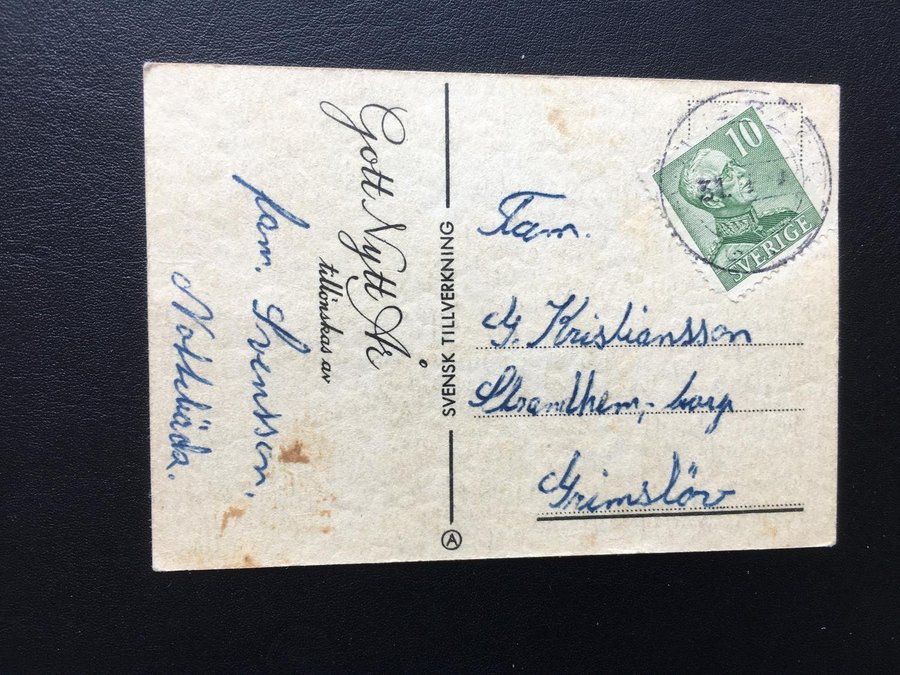 Gott Nytt År
tillönskas av
fam. Svensson.
Nottebäda.
SVENSK TILLVERKNING
A
10
SVERIGE
31
Fam.
G. Kristiansson
Strandhem,- borg
Grimslöv